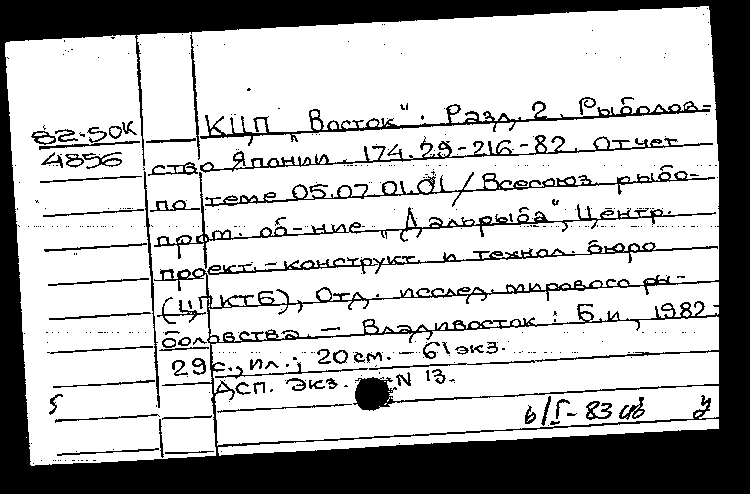 82-50К
4896
КЦП „Восток“: Разд. 2. Рыболов=
ство Японии. 174.29-216-82. Отчет
по теме 05.07 01.01 / Всесоюз. рыбо-
пром. об-ние „Дальрыба“, Центр.
проект.-конструкт. и технол. бюро
(ЦПКТБ), Отд. исслед. мирового ры-
боловства. — Владивосток : Б.и., 1982.-
29 с., ил.; 20 см. - 61 экз.
ДСП. Экз. N 13.
5
6/I-83